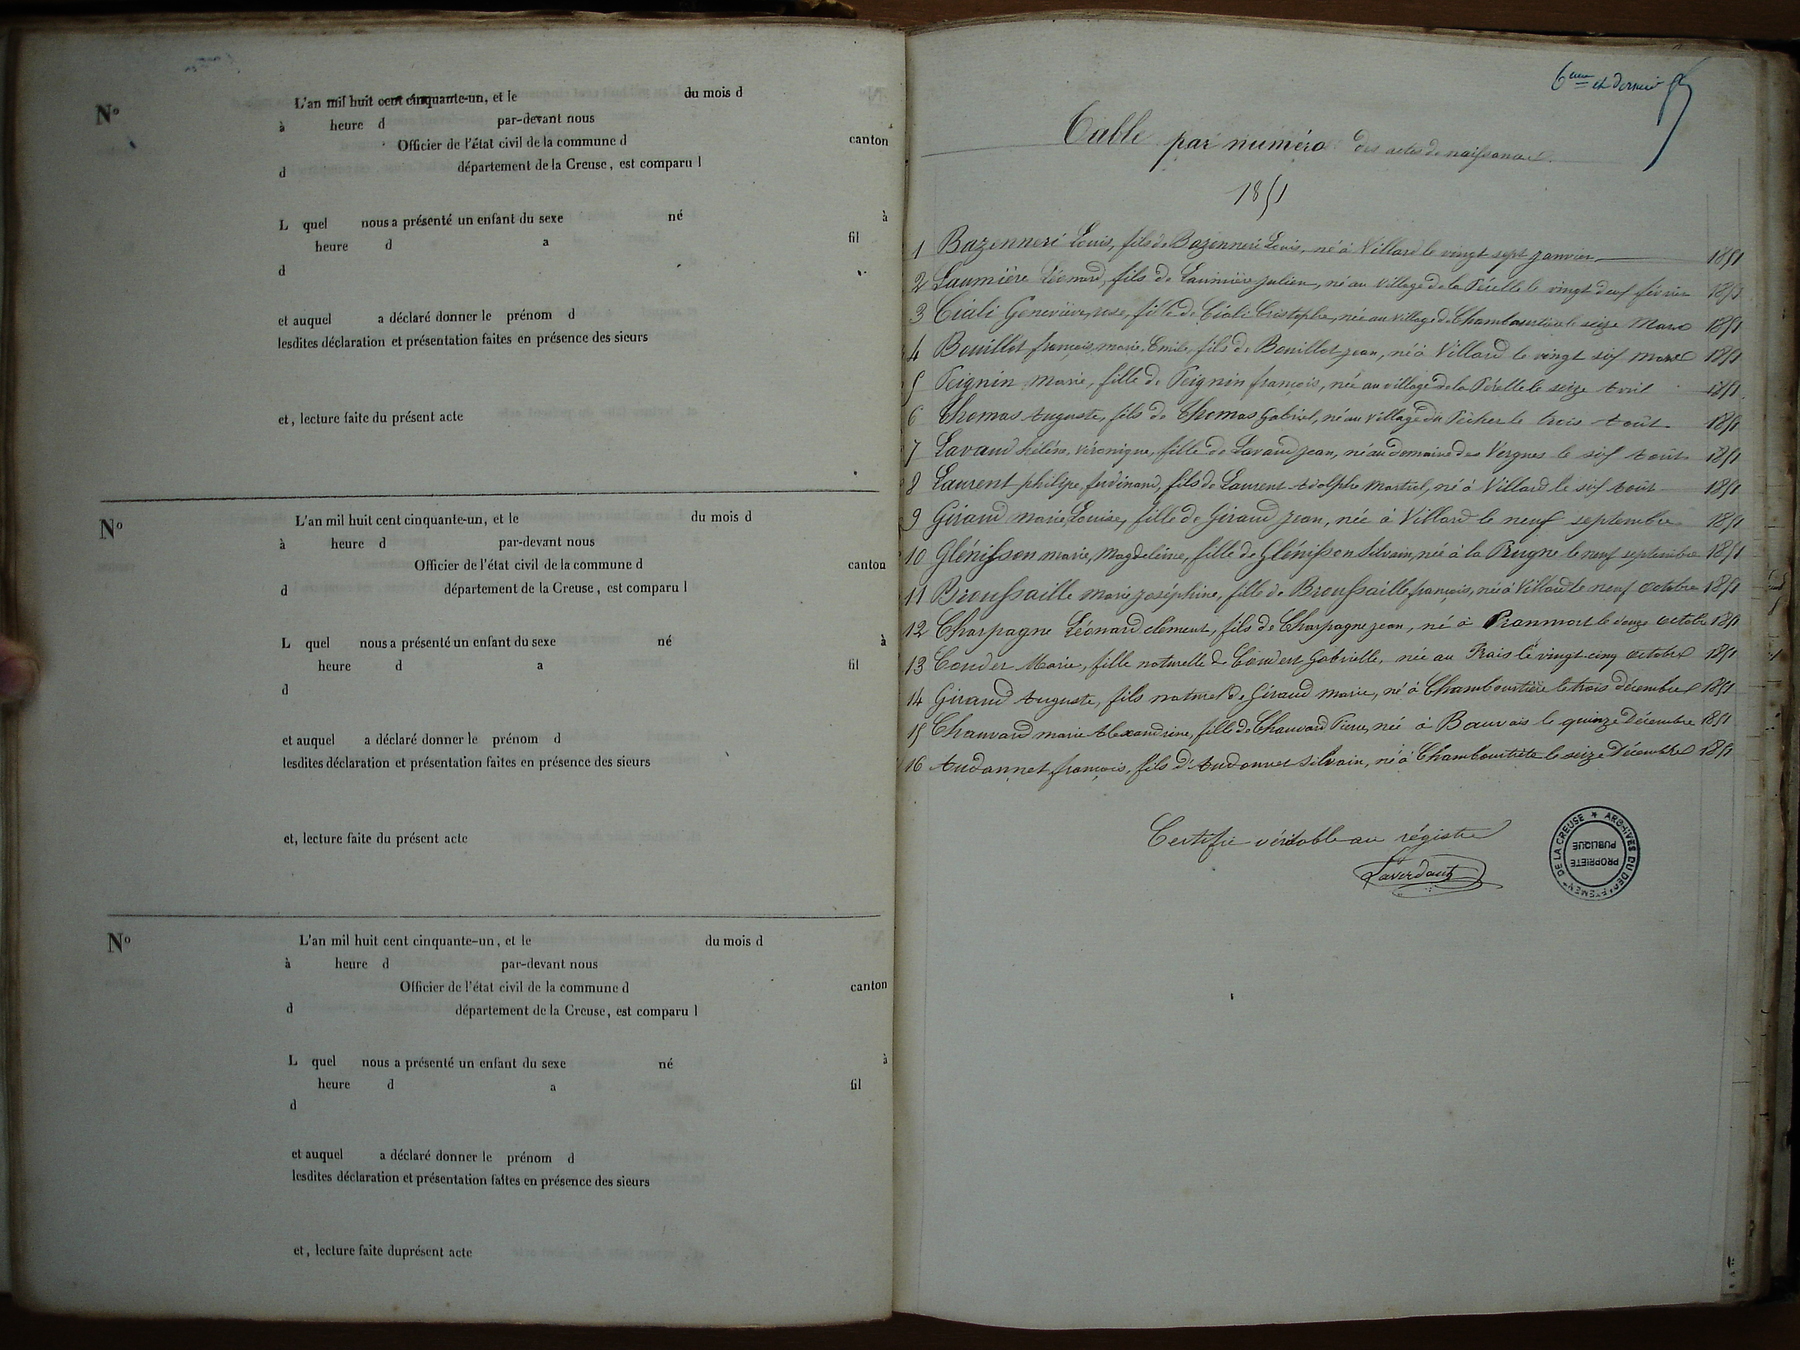 Nº
L'an mil huit cent cinquante-un, et le du mois d
à heure d par-devant nous
Officier de l'état civil de la commune d canton
d département de la Creuse, est comparu l
L quel nous a présenté un enfant du sexe né à
heure d a fil
d
et auquel a déclaré donner le prénom d
lesdites déclaration et présentation faites en présence des sieurs
et, lecture faite du présent acte
Nº
L'an mil huit cent cinquante-un, et le du mois d
à heure d par-devant nous
Officier de l'état civil de la commune d canton
d département de la Creuse, est comparu l
L quel nous a présenté un enfant du sexe né à
heure d a fil
d
et auquel a déclaré donner le prénom d
lesdites déclaration et présentation faites en présence des sieurs
et, lecture faite du présent acte
Nº
L'an mil huit cent cinquante-un, et le du mois d
à heure d par-devant nous
Officier de l'état civil de la commune d canton
d département de la Creuse, est comparu l
L quel nous a présenté un enfant du sexe né à
heure d a fil
d
et auquel a déclaré donner le prénom d
lesdites déclaration et présentation faites en présence des sieurs
et, lecture faite duprésent acte
6eme et dernier
Table par numéro des actes de naissance
1851
1 Bazenneri Louis, fils de Bazenneri Louis, né à Villard le vingt sept janvier 1851
2 Laumière Léonard, fils de Laumière Julien, né au Village de la Pérelle le vingt deux février 1851
3 Ciali Geneviève, rose, fille de Ciali Cristophe, née au village de Chambourstière le seize Mars 1851
4 Bouillot françois, marie, Emile, fils de Bouillot jean, né à Villard le vingt six mars 1851
5 Peignin marie, fille de Peignin françois, née au village de la Pérelle le seize Avril 1851
6 Thomas Auguste, fils de Thomas Gabriel, né au village du Pêcher le trois Août 1851
7 Lavaud hélène, véronique, fille de Lavaud jean, née au domaine des Vergnes le six Août 1851
8 Laurent philipe, ferdinand, fils de Laurent Adolphe Martial, né à Villard le six Août 1851
9 Giraud marie Louise, fille de Giraud jean, née à Villard le neuf septembre 1851
10 Glénisson marie, Magdeleine, fille de Glénisson Silvain, née à la Prugne le neuf septembre 1851
11 Broussaille marie joséphine, fille de Broussaille françois, née à Villard le neuf octobre 1851
12 Charpagne Léonard clément, fils de Charpagne jean, né à Pranmort le douze octobre 1851
13 Couder Marie, fille naturelle de Coudert Gabrielle, née au Frais le vingt-cinq octobre 1851
14 Giraud Auguste, fils naturel de Giraud marie, né à Chambourstière le trois décembre 1851
15 Chauvard marie Alexandrine, fille de Chauvard Pierre, née à Bauvais le quinze Décembre 1851
16 Audonnet françois, fils d'Audonnet Silvain, né à Chambourstière le seize Décembre 1851
Certifié véritable au régistre
Laverdant
ARCHIVES DU DÉPARTEMENT DE LA CREUSE
PROPRIÉTÉ
PUBLIQUE